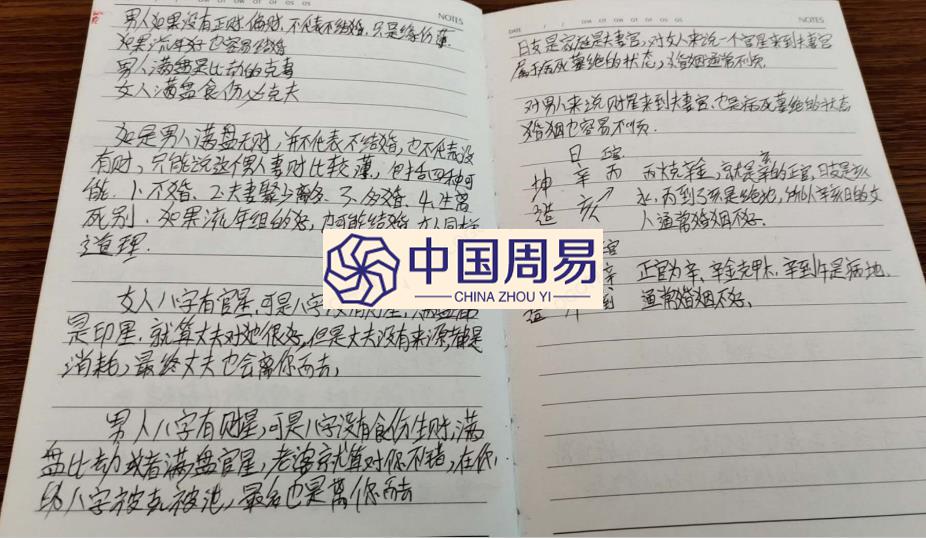 NOTES
男人如果没有正财偏财，不代表不结婚，只是缘份薄
如果流年好也容易结婚
男人满盘是比劫的克妻
女人满盘食伤必克夫
如是男人满盘无财，并不代表不结婚，也不代表没
有财，只能说这个男人妻财比较薄，包括四种可
能．1．不婚、2．夫妻聚少离多、3、多婚、4．生离
死别．如果流年组的好，也可能结婚，女人同样
道理．
女人八字有官星，可是八字没有财星，满盘都
是印星．就算丈夫对她很好，但是丈夫没有来源，都是
消耗，最终丈夫也会离你而去，
男人八字有财星，可是八字没有食伤生财，满
盘比劫或者满盘官星，老婆就算对你不错，在你
八字被克被泄，最多也是离你而去
DATE
NOTES
日支是家庭是夫妻宫，对女人来说一个官星来到夫妻宫
属于病死墓绝的状态，婚姻通常不顺．
对男人来说财星来到夫妻宫，也是病死墓绝的状态
婚姻也容易不顺．
日 官
坤 辛 丙 丙火克辛金，丙就是辛的正官，日支是亥
造 亥 水，丙到了亥是绝地，所以辛亥日的女
人通常婚姻不好．
官
辛 正官为辛，辛金克甲木，辛到午是病地．
造 午 通常婚姻不好、
中国周易
CHINA ZHOU YI